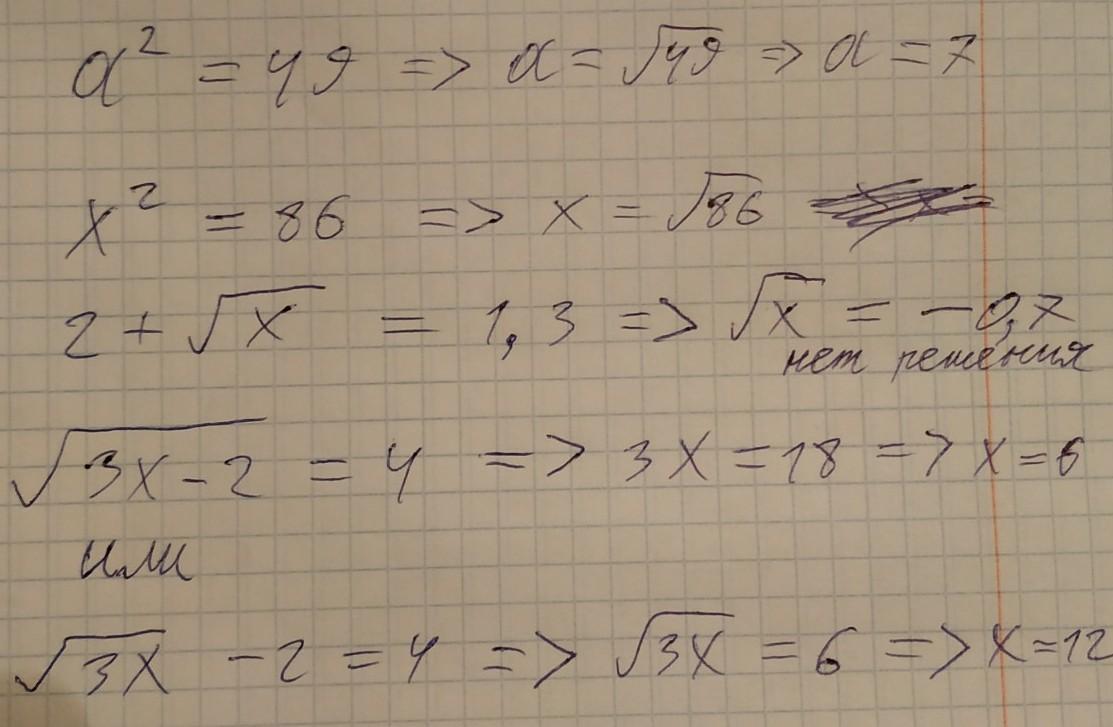 a² = 49 => a = √49 => a = 7
x² = 86 => x = √86
2 + √x = 1,3 => √x = -0,7
нет решения
√(3x - 2) = 4 => 3x = 18 => x = 6
или
√3x - 2 = 4 => √3x = 6 => x = 12